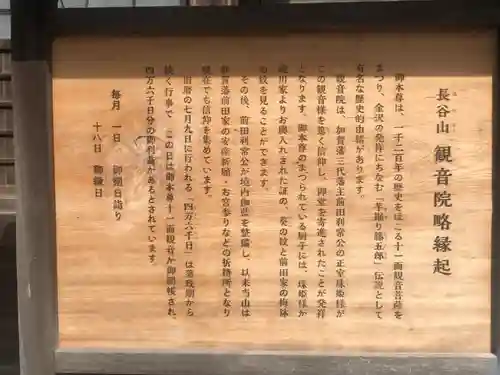 長谷山 観音院略縁起
御本尊は、一千二百年の歴史をほこる十一面観音菩薩を
まつり、金沢の発祥にちなむ「芋掘り藤五郎」伝説として
有名な歴史的由緒があります。
観音院は、加賀藩三代藩主前田利常公の正室珠姫様が
この観音様を篤く信仰し、御堂を寄進されたことが発祥
となります。御本尊のまつられている厨子には、珠姫様が
徳川家よりお輿入れされた証の、葵の紋と前田家の梅鉢
の紋を見ることができます。
その後、前田利常公が境内伽藍を整備し、以来当山は
加賀藩前田家の安産祈願・お宮参りなどの祈祷所となり
現在でも信仰を集めています。
旧暦の七月九日に行われる「四万六千日」は藩政期から
続く行事で、この日は御本尊十一面観音が御開帳され、
四万六千日分の御利益があるとされています。
毎月 一日 御朔日詣り
十八日 御縁日